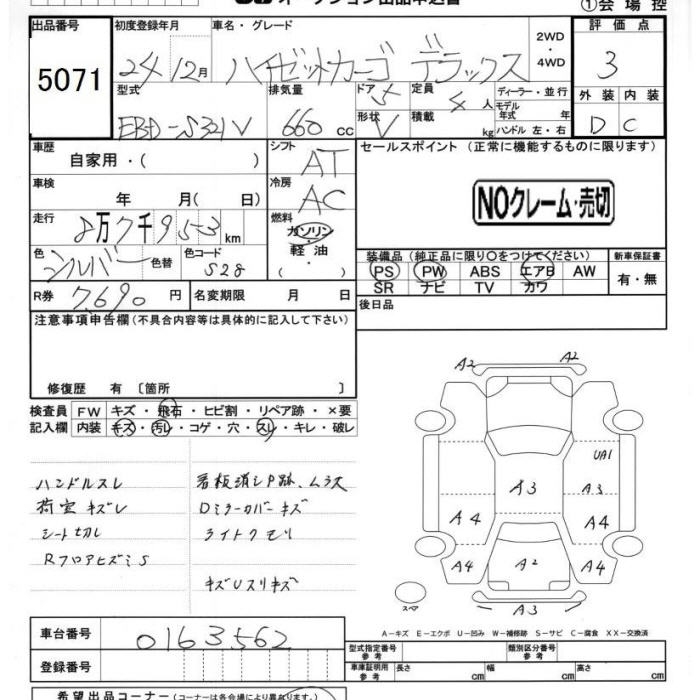 オークション出品申込書
①会場控
出品番号 初度登録年月 車名・グレード 2WD・4WD 評価点
5071 24 12月 ハイゼットカーゴ デラックス 3
型式 排気量 ドア 5 定員 4人 ディーラー・並行 外装 内装
モデル年式 年
EBD-S321V 660cc 形状 V 積載 kg ハンドル 左・右 D C
車歴 シフト セールスポイント (正常に機能するものに限ります)
自家用・( ) AT
車検 冷房 NOクレーム・売切
年 月( 日) AC
走行 8万7千953km 燃料 ガソリン・軽油・( )
色 シルバー 色替 色コード S28
装備品 (純正品に限り○をつけてください) 新車保証書
PS PW ABS エアB AW 有・無
SR ナビ TV カワ
R券 7690円 名変期限 月 日
後日品
注意事項申告欄 (不具合内容等は具体的に記入して下さい)
修復歴 有 [箇所 ]
検査員記入欄 FW キズ・飛石・ヒビ割・リペア跡・×要
内装 キズ・汚レ・コゲ・穴・スレ・キレ・破レ
ハンドルスレ 看板消シP跡、ムラ大
荷室キズレ Dミラーカバーキズ
シート切レ ライトクモリ
RフロアヒズミS
キズUスリキズ
A2 A2
UA1
A3 A3
A4 A4
A4 A2 A4
A3
スペア
A-キズ E-エクボ U-凹み W-補修跡 S-サビ C-腐食 XX-交換済
車台番号 0163562
型式指定番号 参考 類別区分番号 参考
登録番号
車庫証明用 参考 長さ cm 幅 cm 高さ cm
希望出品コーナー (コーナーは各会場により異なります。)